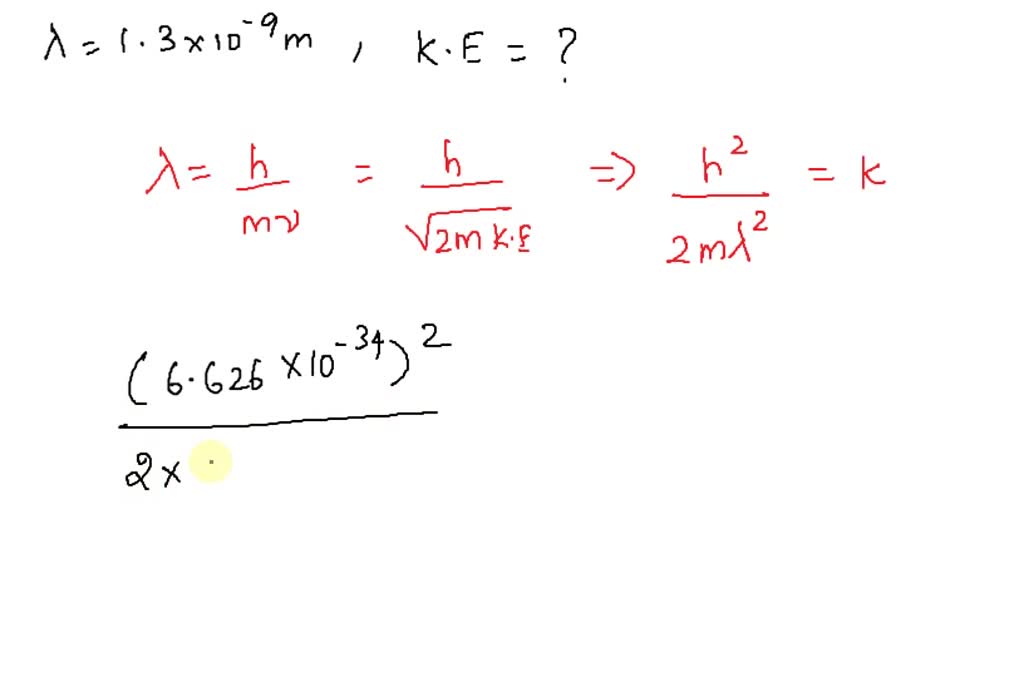 λ = 1.3×10⁻⁹m , K.E = ?
λ = h/mν = h/√(2m K.E) => h²/2mλ² = k
(6.626 ×10⁻³⁴)²
2×